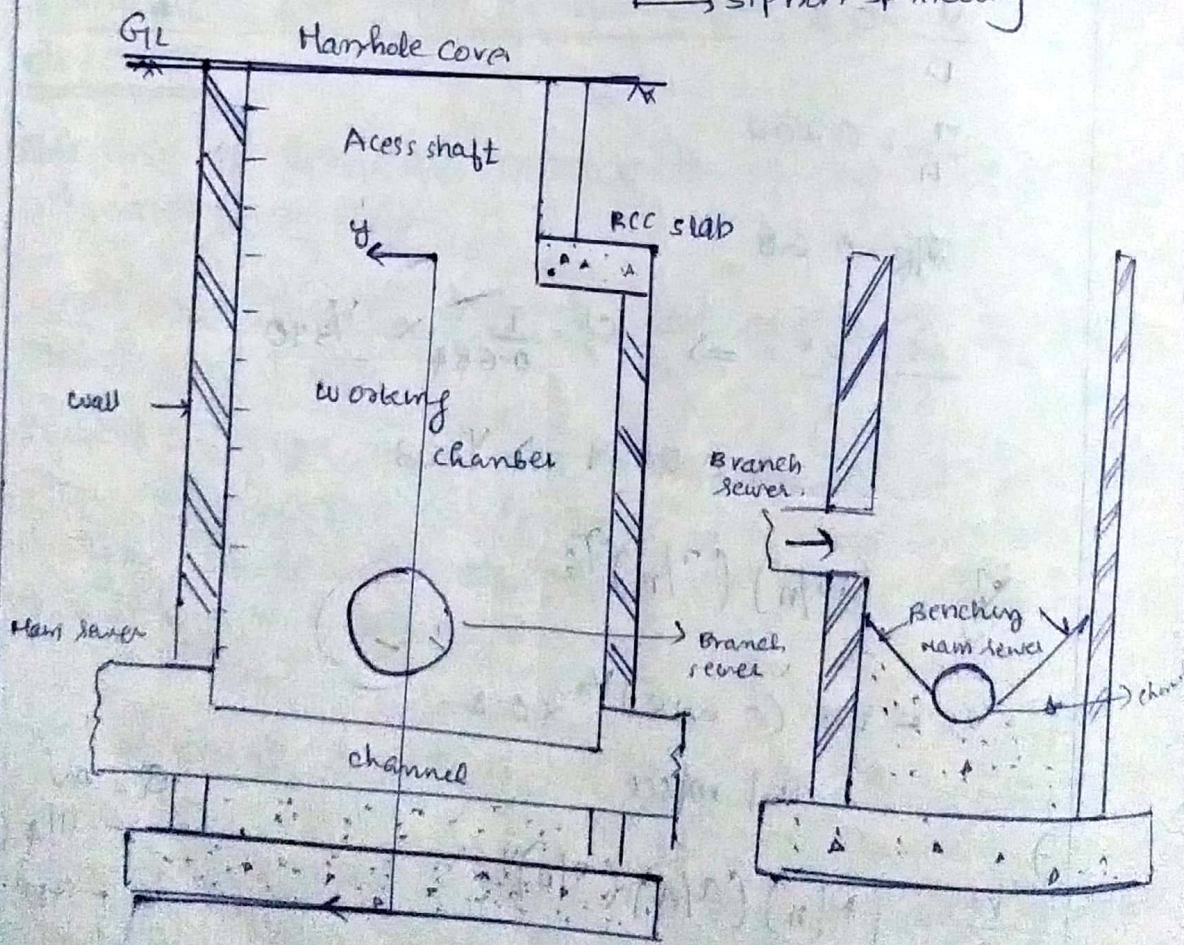 siphon spillway
GL
Manhole cover
Acess shaft
y
RCC slab
wall
working
chamber
Branch
sewer
Main sewer
Branch
sewer
Benching
Main sewer
channel